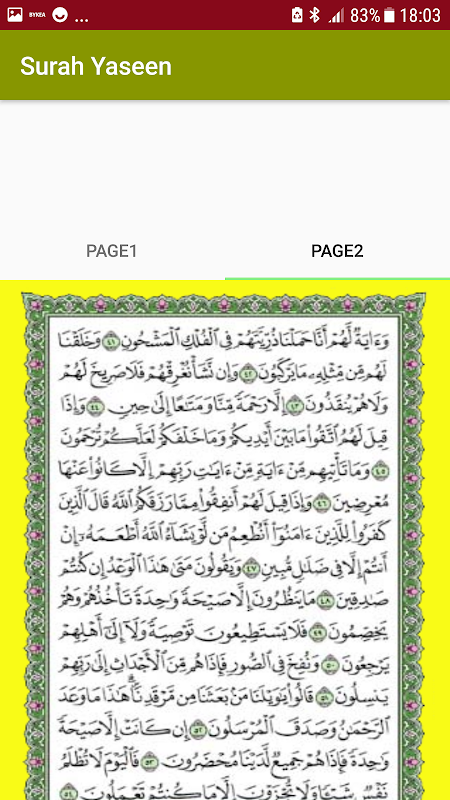 BYKEA ... 83% 18:03
Surah Yaseen
PAGE1 PAGE2
وَءَايَةٌ لَّهُمْ أَنَّا حَمَلْنَا ذُرِّيَّتَهُمْ فِي الْفُلْكِ الْمَشْحُونِ ٤١ وَخَلَقْنَا
لَهُم مِّن مِّثْلِهِ مَا يَرْكَبُونَ ٤٢ وَإِن نَّشَأْ نُغْرِقْهُمْ فَلَا صَرِيخَ لَهُمْ
وَلَا هُمْ يُنقَذُونَ ٤٣ إِلَّا رَحْمَةً مِّنَّا وَمَتَاعًا إِلَىٰ حِينٍ ٤٤ وَإِذَا
قِيلَ لَهُمُ اتَّقُوا مَا بَيْنَ أَيْدِيكُمْ وَمَا خَلْفَكُمْ لَعَلَّكُمْ تُرْحَمُونَ
٤٥ وَمَا تَأْتِيهِم مِّنْ ءَايَةٍ مِّنْ ءَايَاتِ رَبِّهِمْ إِلَّا كَانُوا عَنْهَا
مُعْرِضِينَ ٤٦ وَإِذَا قِيلَ لَهُمْ أَنفِقُوا مِمَّا رَزَقَكُمُ اللَّهُ قَالَ الَّذِينَ
كَفَرُوا لِلَّذِينَ ءَامَنُوا أَنُطْعِمُ مَن لَّوْ يَشَاءُ اللَّهُ أَطْعَمَهُ إِنْ
أَنتُمْ إِلَّا فِي ضَلَالٍ مُّبِينٍ ٤٧ وَيَقُولُونَ مَتَىٰ هَٰذَا الْوَعْدُ إِن كُنتُمْ
صَادِقِينَ ٤٨ مَا يَنظُرُونَ إِلَّا صَيْحَةً وَاحِدَةً تَأْخُذُهُمْ وَهُمْ
يَخِصِّمُونَ ٤٩ فَلَا يَسْتَطِيعُونَ تَوْصِيَةً وَلَا إِلَىٰ أَهْلِهِمْ
يَرْجِعُونَ ٥٠ وَنُفِخَ فِي الصُّورِ فَإِذَا هُم مِّنَ الْأَجْدَاثِ إِلَىٰ رَبِّهِمْ
يَنسِلُونَ ٥١ قَالُوا يَا وَيْلَنَا مَن بَعَثَنَا مِن مَّرْقَدِنَا هَٰذَا مَا وَعَدَ
الرَّحْمَٰنُ وَصَدَقَ الْمُرْسَلُونَ ٥٢ إِن كَانَتْ إِلَّا صَيْحَةً
وَاحِدَةً فَإِذَا هُمْ جَمِيعٌ لَّدَيْنَا مُحْضَرُونَ ٥٣ فَالْيَوْمَ لَا تُظْلَمُ
نَفْسٌ شَيْئًا وَلَا تُجْزَوْنَ إِلَّا مَا كُنتُمْ تَعْمَلُونَ ٥٤